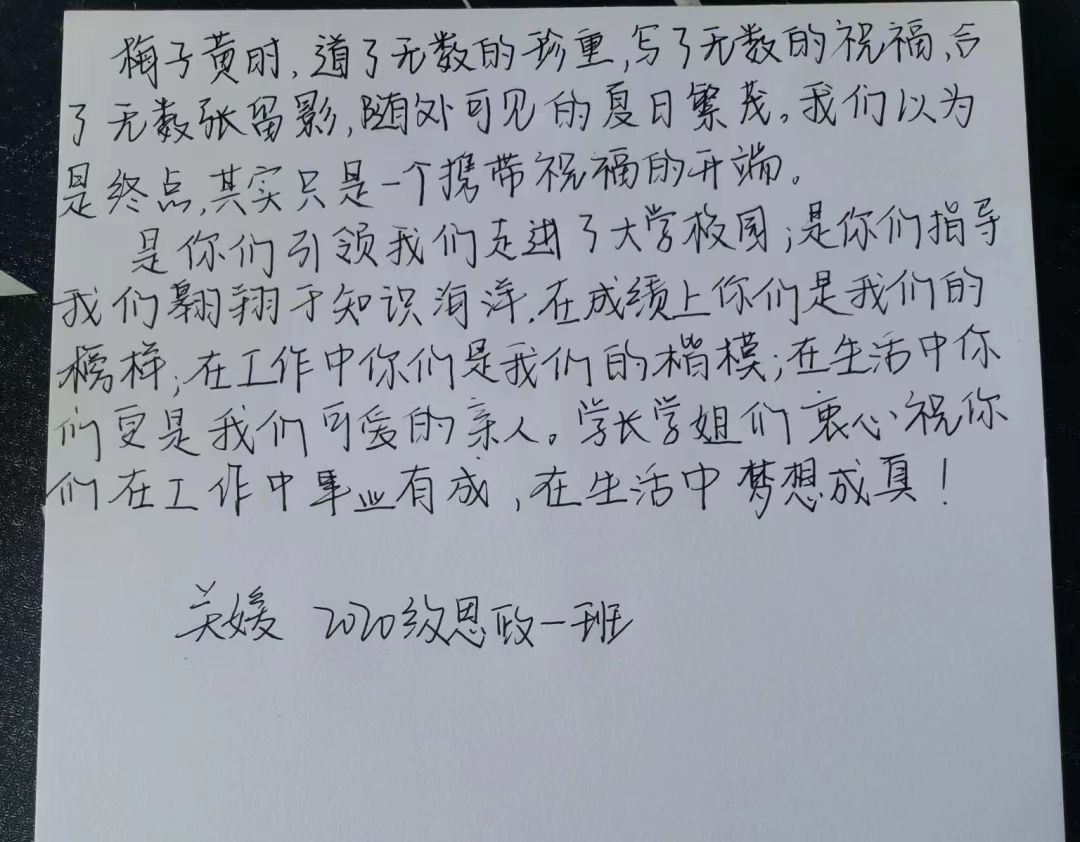 梅子黄时,道了无数的珍重,写了无数的祝福,合
了无数张留影,随处可见的夏日繁茂。我们以为
是终点,其实只是一个携带祝福的开端。
是你们引领我们走进了大学校园;是你们指导
我们翱翔于知识海洋.在成绩上你们是我们的
榜样;在工作中你们是我们的楷模;在生活中你
们更是我们可爱的亲人。学长学姐们衷心祝你
们在工作中事业有成,在生活中梦想成真!
关媛 2020级思政一班